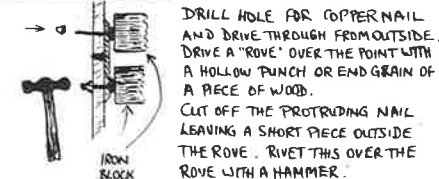 DRILL HOLE FOR COPPER NAIL
AND DRIVE THROUGH FROM OUTSIDE.
DRIVE A "ROVE" OVER THE POINT WITH
A HOLLOW PUNCH OR END GRAIN OF
A PIECE OF WOOD.
CUT OFF THE PROTRUDING NAIL
LEAVING A SHORT PIECE OUTSIDE
THE ROVE. RIVET THIS OVER THE
ROVE WITH A HAMMER.
IRON
BLOCK